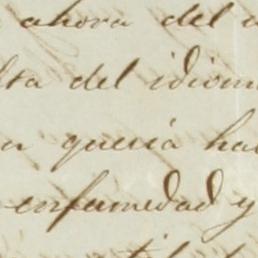 ahora del
del idiom
queria ha
enfermedad y